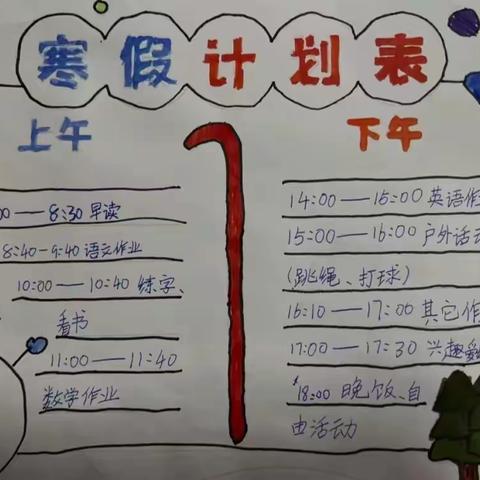 寒假计划表
上午
下午
00——8:30 早读
8:40-9:40 语文作业
10:00——10:40 练字、
看书
11:00——11:40
数学作业
14:00——15:00 英语作
15:00——16:00 户外活
(跳绳、打球)
16:10——17:00 其它作
17:00——17:30 兴趣
18:00 晚饭、自
由活动